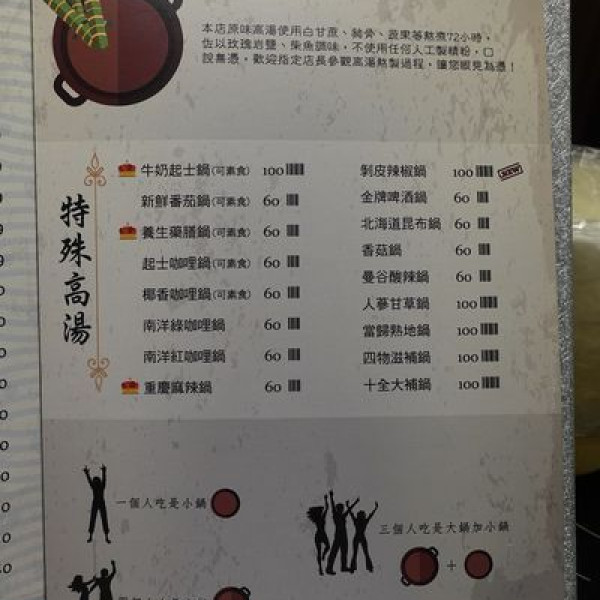 本店原味高湯使用白甘蔗、豬骨、蔬果等熬煮72小時,
佐以玫瑰岩鹽、柴魚調味,不使用任何人工製精粉,口
說無憑,歡迎指定店長參觀高湯熬製過程,讓您眼見為憑!
特殊高湯
牛奶起士鍋(可素食) 100
新鮮番茄鍋(可素食) 60
養生藥膳鍋(可素食) 60
起士咖哩鍋(可素食) 60
椰香咖哩鍋(可素食) 60
南洋綠咖哩鍋 60
南洋紅咖哩鍋 60
重慶麻辣鍋 60
剝皮辣椒鍋 100 NEW
金牌啤酒鍋 60
北海道昆布鍋 60
香菇鍋 60
曼谷酸辣鍋 60
人蔘甘草鍋 100
當歸熟地鍋 100
四物滋補鍋 100
十全大補鍋 100
一個人吃是小鍋
三個人吃是大鍋加小鍋
+